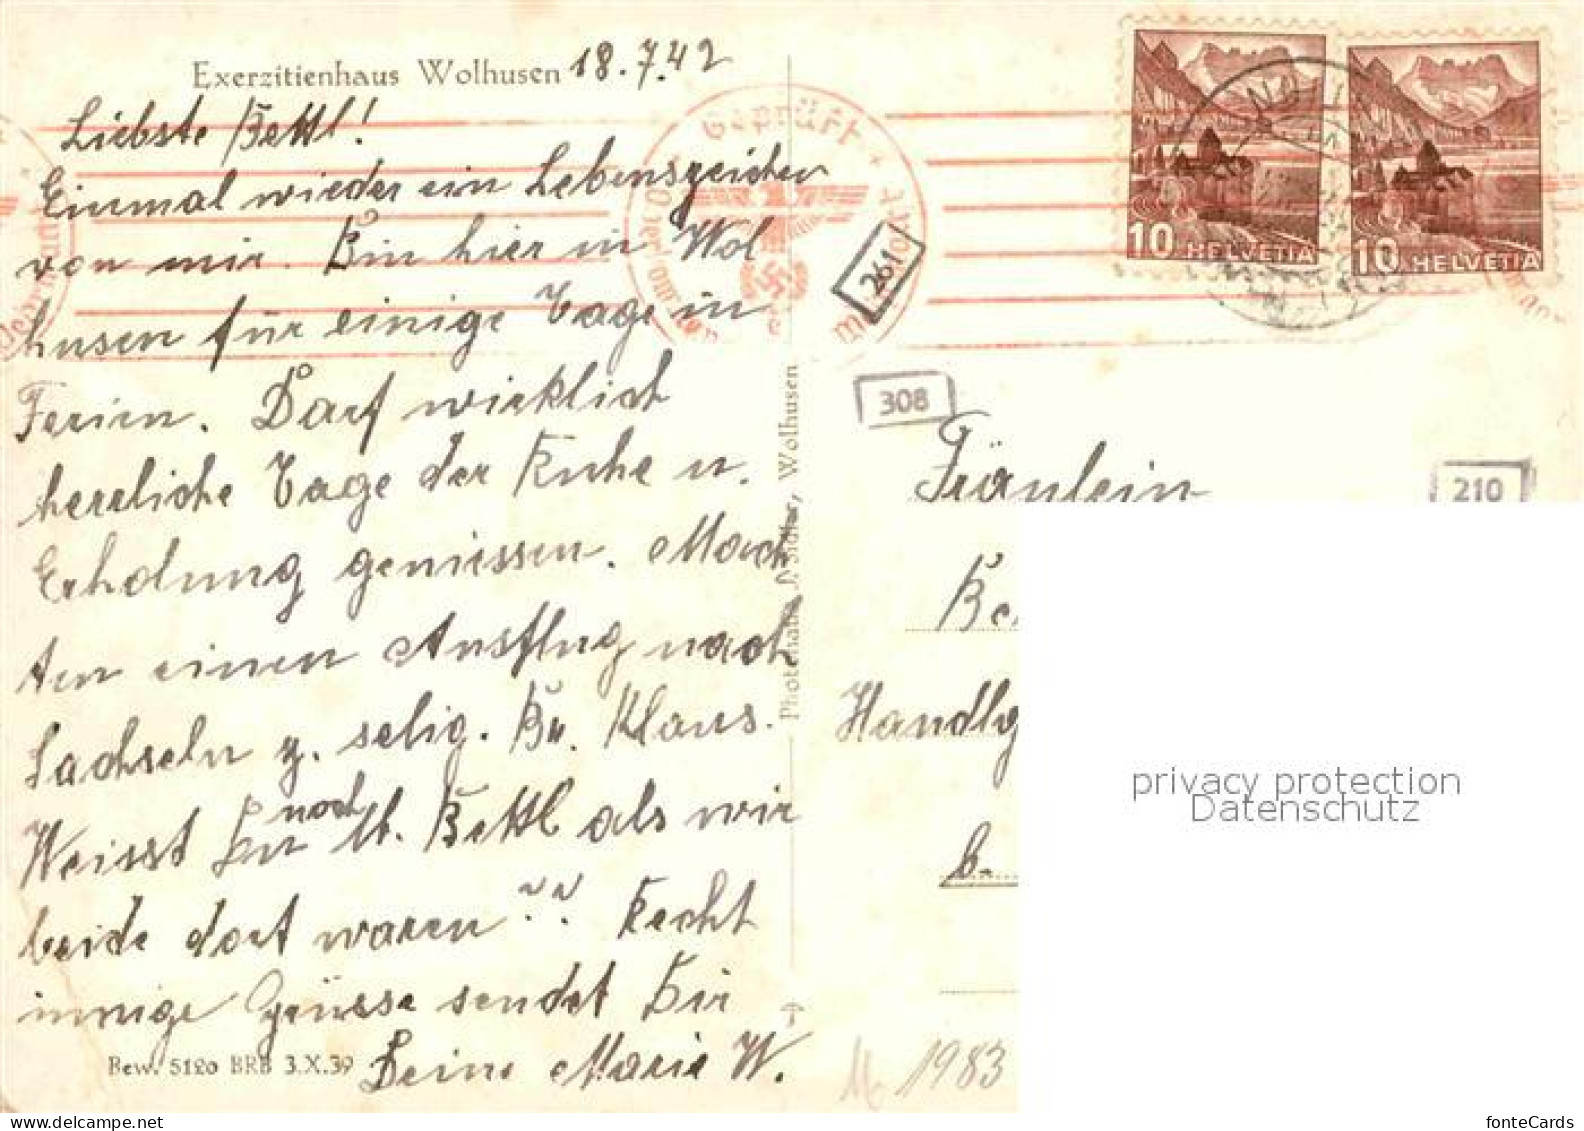 Exerzitienhaus Wolhusen 18.7.42
Liebste Bettl!
Einmal wieder ein Lebenszeichen
von mir. Bin hier in Wol
husen für einige Tage in
Ferien. Darf wirklich
herrliche Tage der Ruhe u.
Erholung geniessen. Mach
ten einen Ausflug nach
Sachseln z. selig. Br. Klaus.
Weisst Du noch lb. Bettl als wir
beide dort waren?? Recht
innige Grüsse sendet Dir
Deine Marie W.
Bew. 5120 BRB 3.X.39
Wolhusen
Geprüft
261
308
210
10 HELVETIA
10 HELVETIA
Fräulein
Be
Handlg
b.
1983
privacy protection
Datenschutz
fonteCards